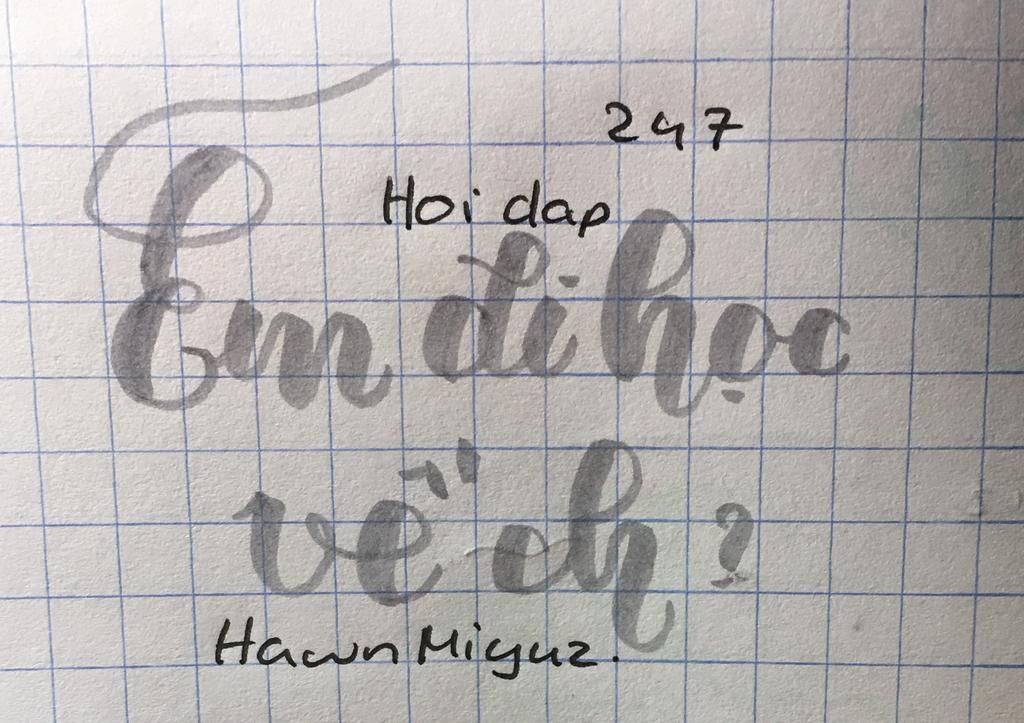 247
Hoi dap
Em đi học
về ch?
HawnMiyuz.